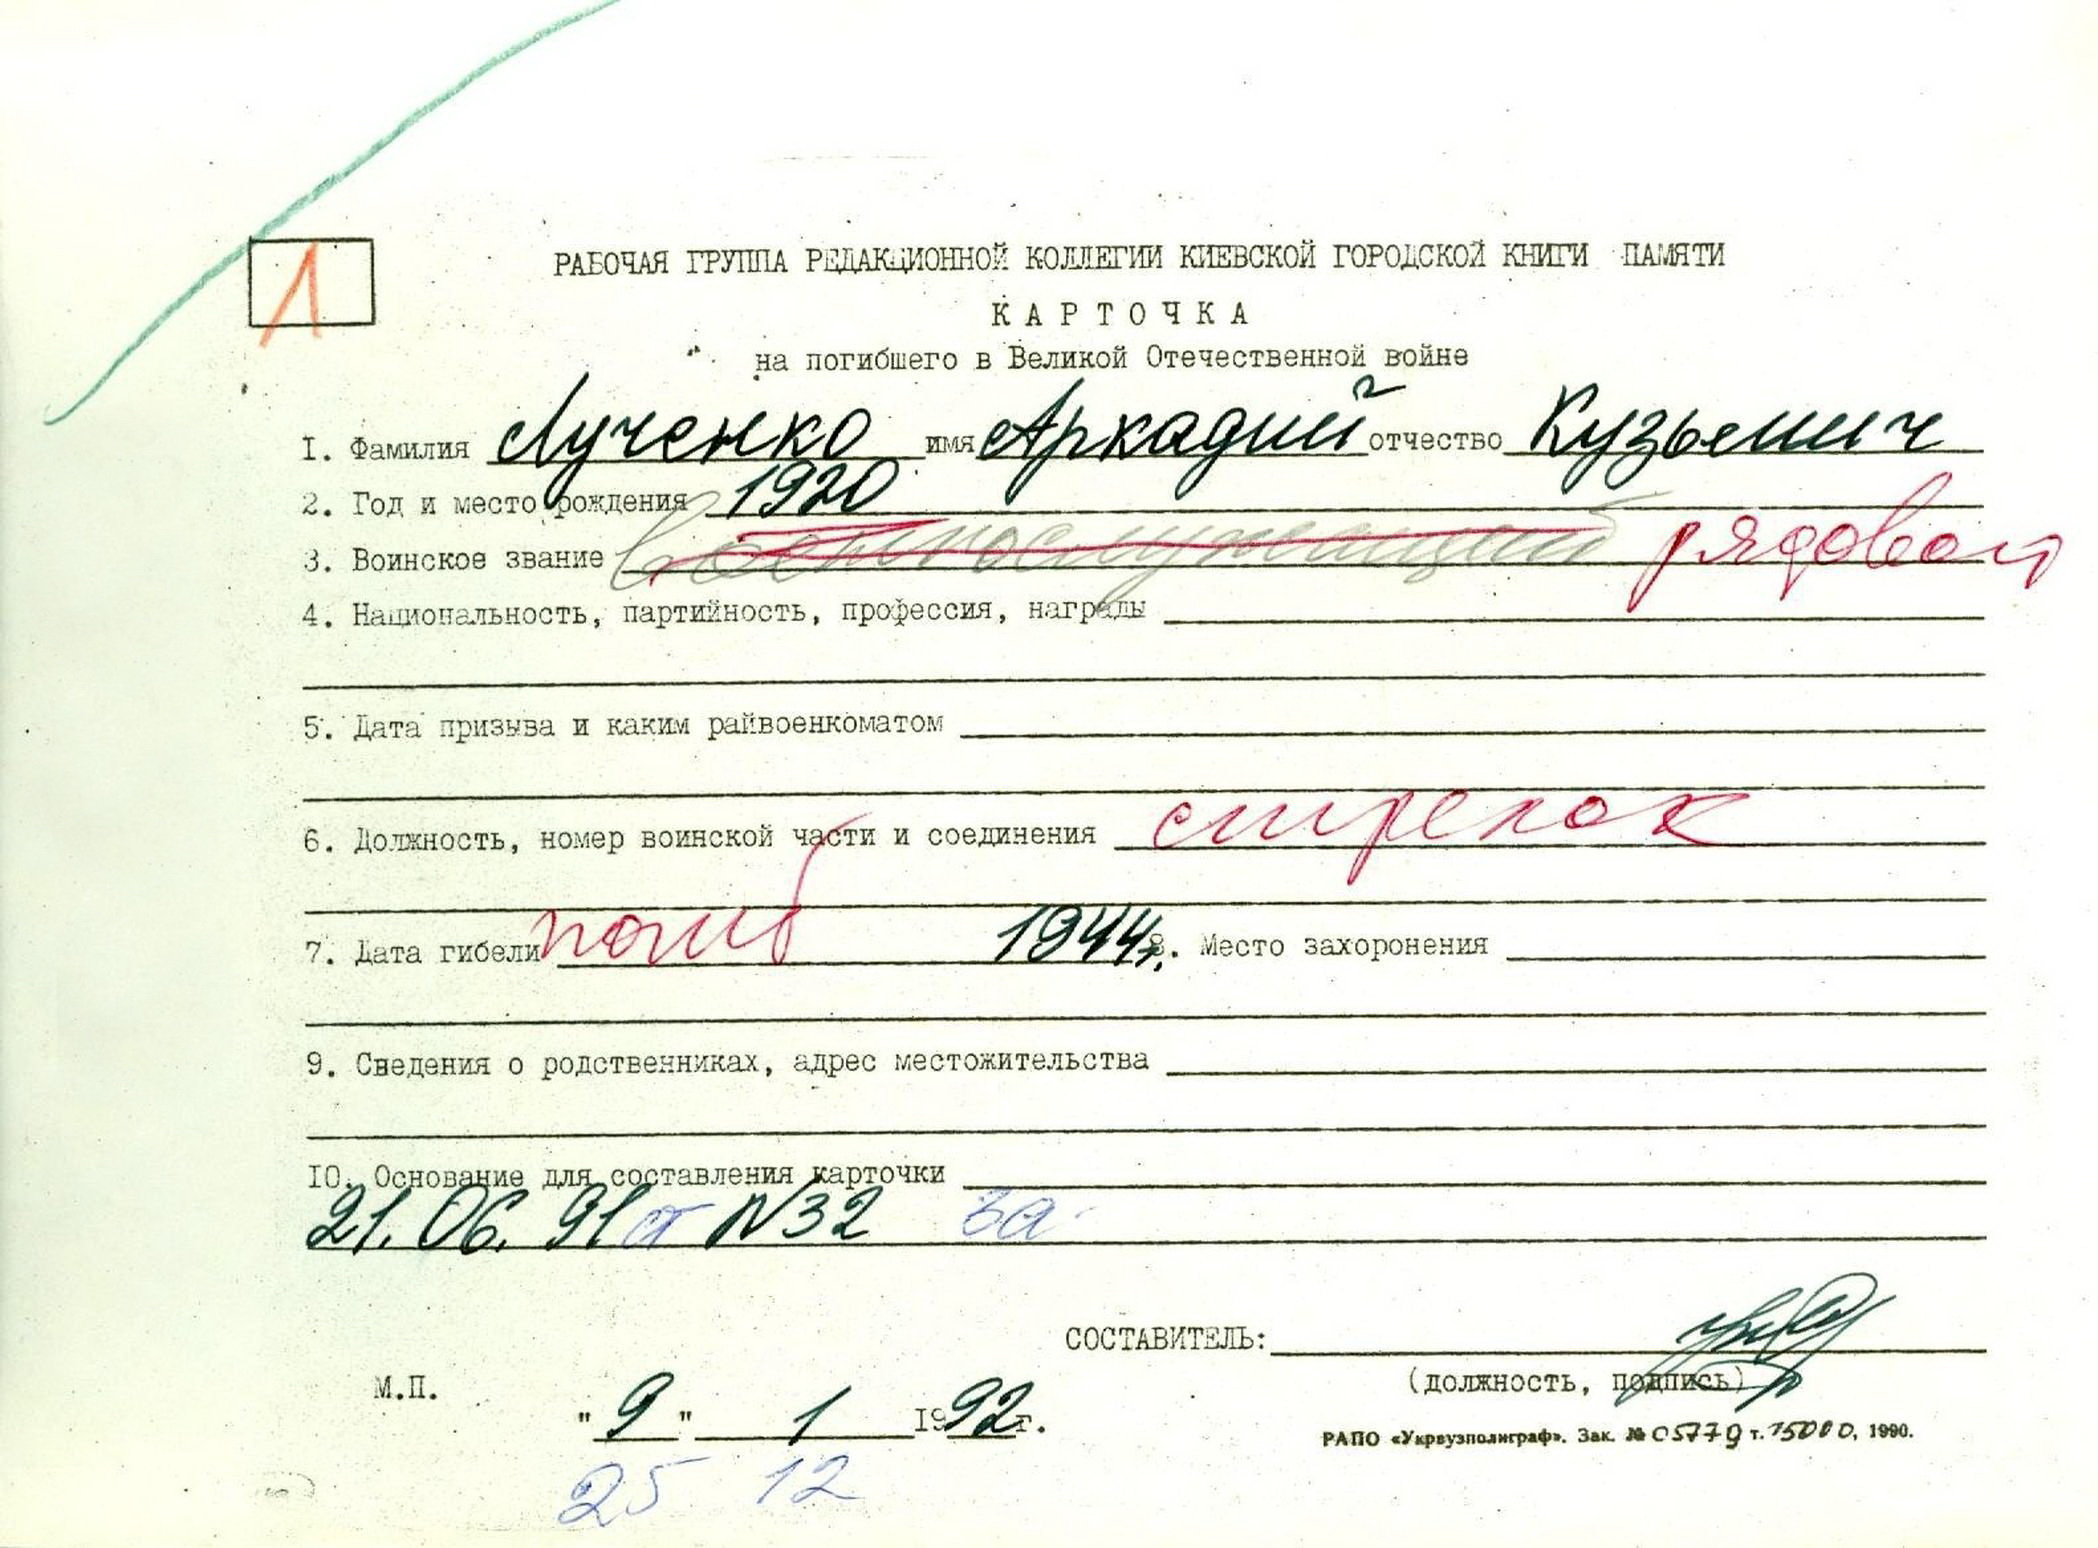 Л
РАБОЧАЯ ГРУППА РЕДАКЦИОННОЙ КОЛЛЕГИИ КИЕВСКОЙ ГОРОДСКОЙ КНИГИ ПАМЯТИ
КАРТОЧКА
на погибшего в Великой Отечественной войне
1. Фамилия Лученко имя Аркадий отчество Кузьмич
2. Год и место рождения 1920
3. Воинское звание военнослужащий рядовой
4. Национальность, партийность, профессия, награды
5. Дата призыва и каким райвоенкоматом
6. Должность, номер воинской части и соединения стрелок
7. Дата гибели погиб 1944г. 8. Место захоронения
9. Сведения о родственниках, адрес местожительства
10. Основание для составления карточки
21.06.91 ст N32 за
СОСТАВИТЕЛЬ:
(должность, подпись)
М.П.
"9" 1 1992г.
РАПО «Укрвузполиграф». Зак. № 05779 т. 15000, 1990.
25 12